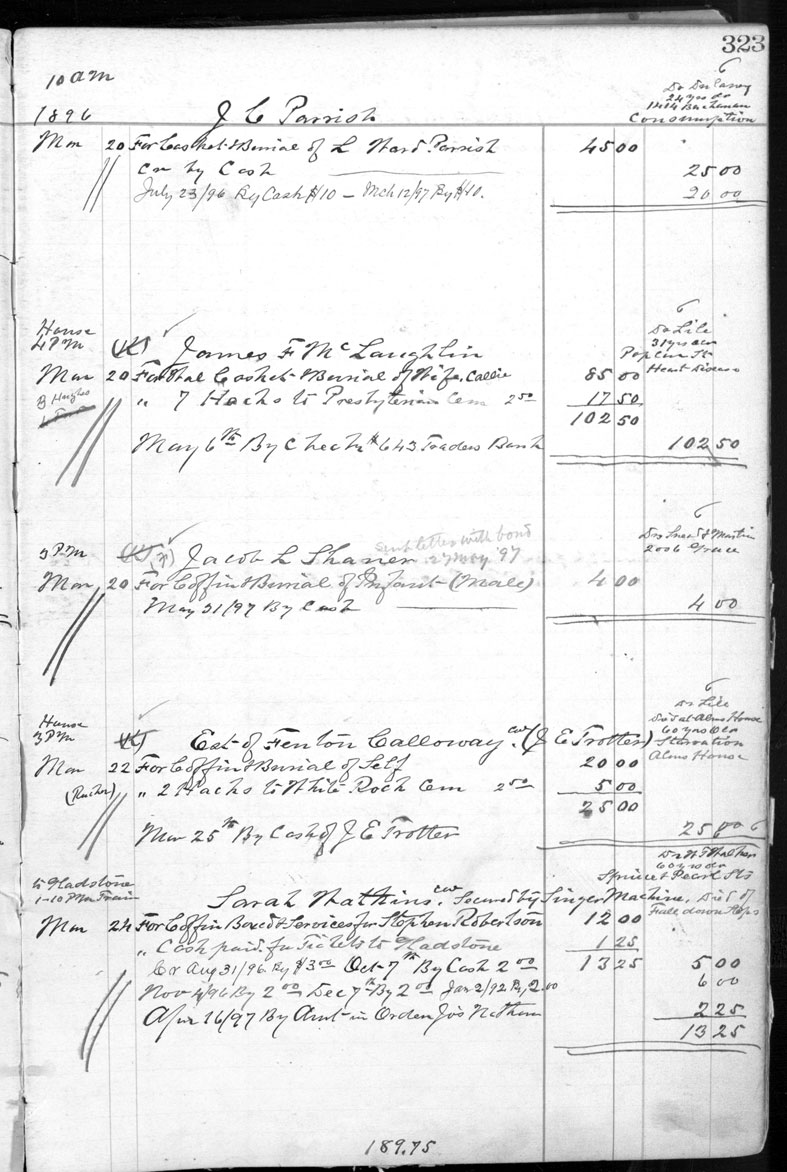 323
10 am
6
Dr Delaney
24 yrs do
1414 Buchanan
Consumption
1896 J C Parrish
Mar 20 For Casket & Burial of L Ward Parrish 45 00
Cr by Cash 25 00
July 23/96 By Cash $10 – Mch 12/97 By $10. 20 00
House
4 PM
6
Dr Lile
31 yrs
Heart Disease
(K) James F McLaughlin
Mar 20 For Casket & Burial of Wife, Callie 85 00
" 7 Hacks to Presbyterian Cem 2 50 17 50
102 50
May 6th By Check # 643 Traders Bank 102 50
6
3 PM
Drs Snead & Martin
2006 Grace
sent letter with bond
27 May '97
Jacob L Shaner
Mar 20 For Coffin & Burial of Infant (Male) 4 00
May 31/97 By Cash 4 00
6
Dr Lile
Died at Alms House
60 yrs Old
Starvation
Alms House
House
3 PM
(K) Est of Fenton Calloway (J E Trotter)
Mar 22 For Coffin & Burial of Self 20 00
(Rucker) " 2 Hacks to White Rock Cem 2 50 5 00
25 00
Mar 25th By Cash of J E Trotter 25 00
6
60 yrs
Spruce & Pearl Sts
to Gladstone
1-10 PM Train
Sarah Watkins. Secured by Singer Machine, Died of
Fall down Steps
Mar 24 For Coffin Boxed & Services for Stephen Robertson 12 00
" Cash paid for Tickets to Gladstone 1 25
Cr Aug 31/96 By $3 00 Oct 7th By Cash 2 00 13 25 5 00
Nov 4/96 By 2 00 Dec 7th By 2 00 Jan 2/92 By 2.00 6 00
Apr 16/97 By Amt in Order Jos 2 25
13 25
189.75